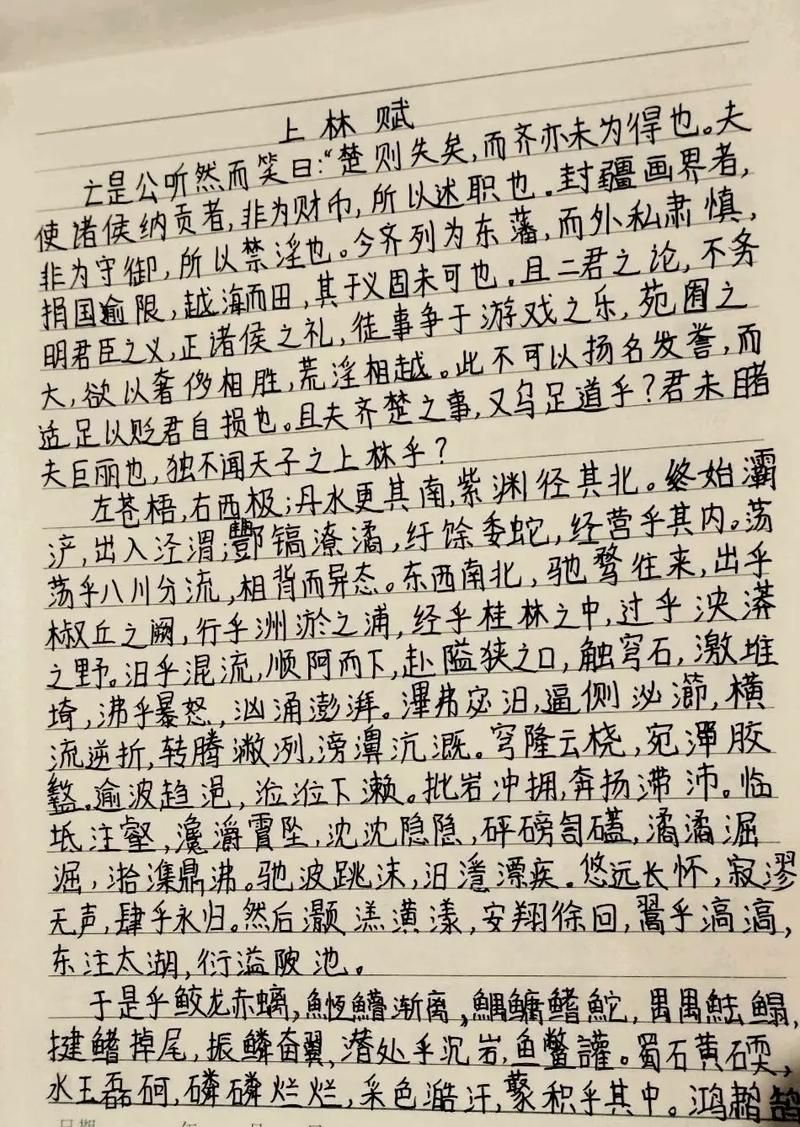 上林赋
亡是公听然而笑曰:“楚则失矣,而齐亦未为得也。夫
使诸侯纳贡者,非为财币,所以述职也.封疆画界者,
非为守御,所以禁淫也。今齐列为东藩,而外私肃慎,
捐国逾限,越海而田,其于义固未可也.且二君之论,不务
明君臣之义,正诸侯之礼,徒事争于游戏之乐,苑囿之
大,欲以奢侈相胜,荒淫相越。此不可以扬名发誉,而
适足以贬君自损也。且夫齐楚之事,又乌足道乎?君未睹
夫巨丽也,独不闻天子之上林乎?
左苍梧,右西极;丹水更其南,紫渊径其北。终始灞
浐,出入泾渭;酆镐潦潏,纡馀委蛇,经营乎其内。荡
荡乎八川分流,相背而异态。东西南北,驰骛往来,出乎
椒丘之阙,行乎洲淤之浦,经乎桂林之中,过乎泱漭
之野。汩乎混流,顺阿而下,赴隘狭之口,触穹石,激堆
埼,沸乎暴怒,汹涌澎湃。滭弗宓汩,逼侧泌瀄,横
流逆折,转腾潎洌,滂濞沆溉。穹隆云桡,宛潬胶
盭.逾波趋浥,涖涖下濑。批岩冲拥,奔扬滞沛。临
坻注壑,瀺灂霣坠,沈沈隐隐,砰磅訇礚,潏潏淈
淈,湁潗鼎沸。驰波跳沫,汩㴔漂疾.悠远长怀,寂漻
无声,肆乎永归。然后灏溔潢漾,安翔徐回,翯乎滈滈,
东注太湖,衍溢陂池。
于是乎鲛龙赤螭,䱍䲛渐离,鰅鳙鳍鮀,禺禺魼鳎,
揵鳍掉尾,振鳞奋翼,潜处乎沉岩,鱼鳖讙。蜀石黄碝,
水玉磊砢,磷磷烂烂,采色澔汗,藂积乎其中。鸿鹔鹄